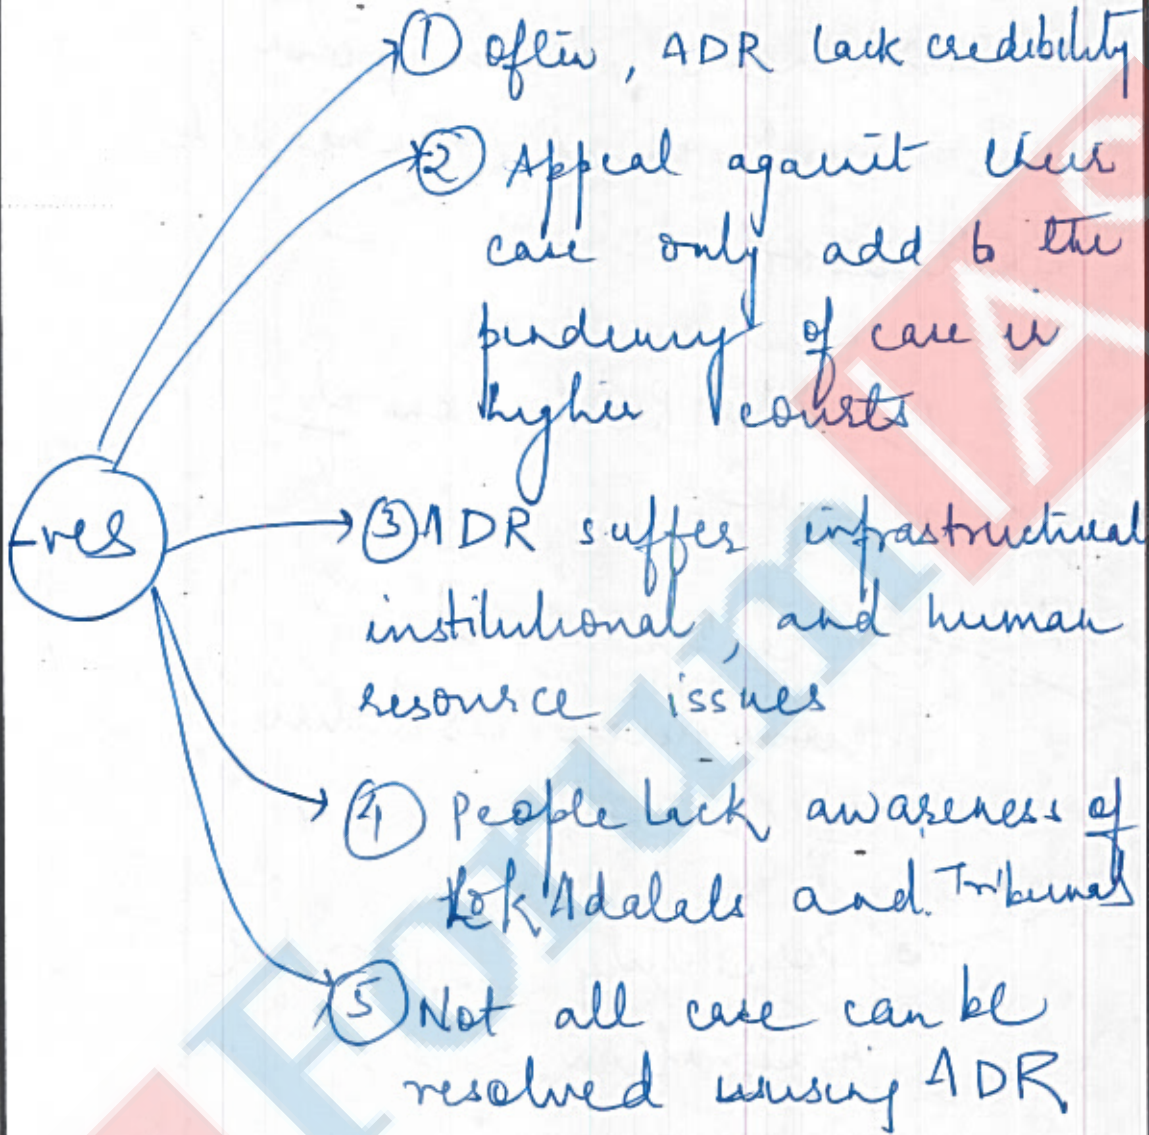 ① Often, ADR lack credibility
② Appeal against their
case only add to the
pendency of case in
higher courts
-ves
③ ADR suffer infrastructural
institutional, and human
resource issues
④ People lack awareness of
Lok Adalats and Tribunals
⑤ Not all case can be
resolved using ADR
Forum IAS